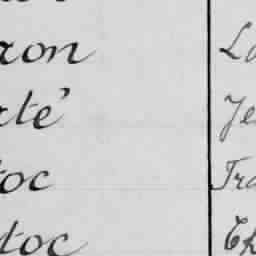 ron La
rté' Je
toc Tra
toc Th